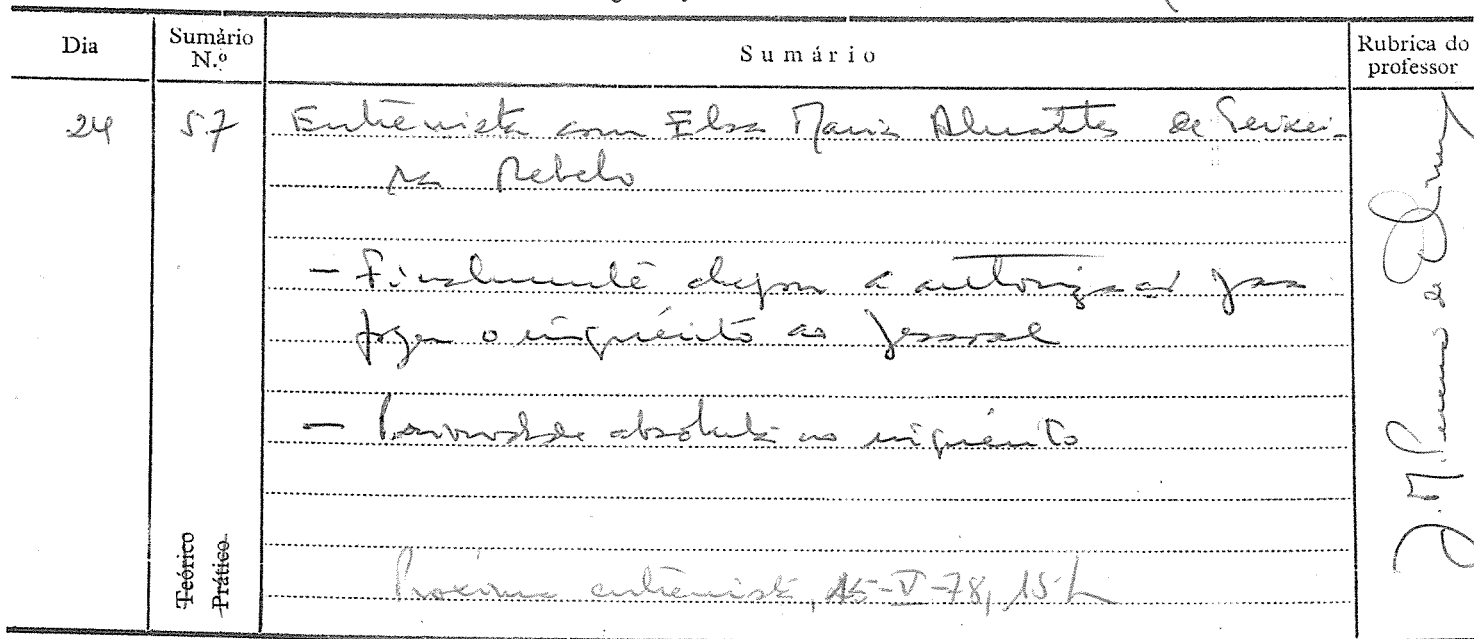 Dia
Sumário N.º
Sumário
Rubrica do professor
24
57
Entrevista com Elsa Maria de Teixei-
ra Rebelo
- Finalmente chegou a autorização para
fazer o inquérito ao pessoal
- Prioridade absoluta ao inquérito
Próxima entrevista, 15-V-78, 15h
Teórico
Prático
J. M. de